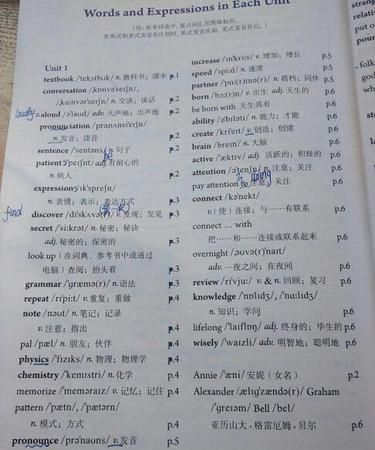 Words and Expressions in Each Unit
(注: 在本词表中, 重点词汇用黑体标出。
在英式和美式发音有区别时, 英式发音在前, 美式发音在后。)
Unit 1
textbook /'tekstbʊk/ n. 教科书; 课本 p.1
conversation /ˌkɒnvə'seɪʃn/,
/ˌkɑːnvər'seɪʃn/ n. 交谈; 谈话 p.2
aloud /ə'laʊd/ adv. 大声地; 出声地 p.2
pronunciation /prəˌnʌnsi'eɪʃn/
n. 发音; 读音 p.2
sentence /'sentəns/ n. 句子 p.2
patient /'peɪʃnt/ adj. 有耐心的
n. 病人 p.2
expression /ɪk'spreʃn/
n. 表情; 表示; 表达方式 p.3
find
discover /dɪ'skʌvə(r)/ v. 发现; 发觉 p.3
secret /'siːkrət/ n. 秘密; 秘诀
adj. 秘密的; 保密的 p.3
look up (在词典、参考书中或通过
电脑) 查阅; 抬头看 p.3
grammar /'græmə(r)/ n. 语法 p.3
repeat /rɪ'piːt/ v. 重复; 重做 p.4
note /nəʊt/ n. 笔记; 记录
v. 注意; 指出 p.4
pal /pæl/ n. 朋友; 伙伴 p.4
physics /'fɪzɪks/ n. 物理; 物理学 p.4
chemistry /'kemɪstri/ n. 化学 p.4
memorize /'meməraɪz/ v. 记忆; 记住 p.4
pattern /'pætn/, /'pætərn/
n. 模式; 方式 p.4
pronounce /prə'naʊns/ v. 发音 p.5
increase /ɪn'kriːs/ v. 增加; 增长 p.5
speed /spiːd/ n. 速度 p.5
partner /'pɑː(r)tnə(r)/ n. 搭档; 同伴 p.5
born /bɔː(r)n/ v. 出生 adj. 天生的 p.6
be born with 天生具有 p.6
ability /ə'bɪləti/ n. 能力; 才能 p.6
create /kri'eɪt/ v. 创造; 创建 p.6
brain /breɪn/ n. 大脑 p.6
active /'æktɪv/ adj. 活跃的; 积极的 p.6
attention /ə'tenʃn/ n. 注意; 关注 p.6
doing
pay attention to 注意; 关注 p.6
connect /kə'nekt/
v. (使) 连接; 与……有联系 p.6
connect … with
把……和……连接或联系起来 p.6
overnight /ˌəʊvə(r)'naɪt/
adv. 一夜之间; 在夜间 p.6
review /rɪ'vjuː/ v. & n. 回顾; 复习 p.6
knowledge /'nɒlɪdʒ/, /'nɑːlɪdʒ/
n. 知识; 学问 p.6
lifelong /'laɪflɒŋ/ adj. 终身的; 毕生的 p.6
wisely /'waɪzli/ adv. 明智地; 聪明地 p.6
Annie /'æni/ 安妮 (女名) p.2
Alexander /ˌælɪɡ'zændə(r)/ Graham
/'ɡreɪəm/ Bell /bel/
亚历山大·格雷厄姆·贝尔 p.6